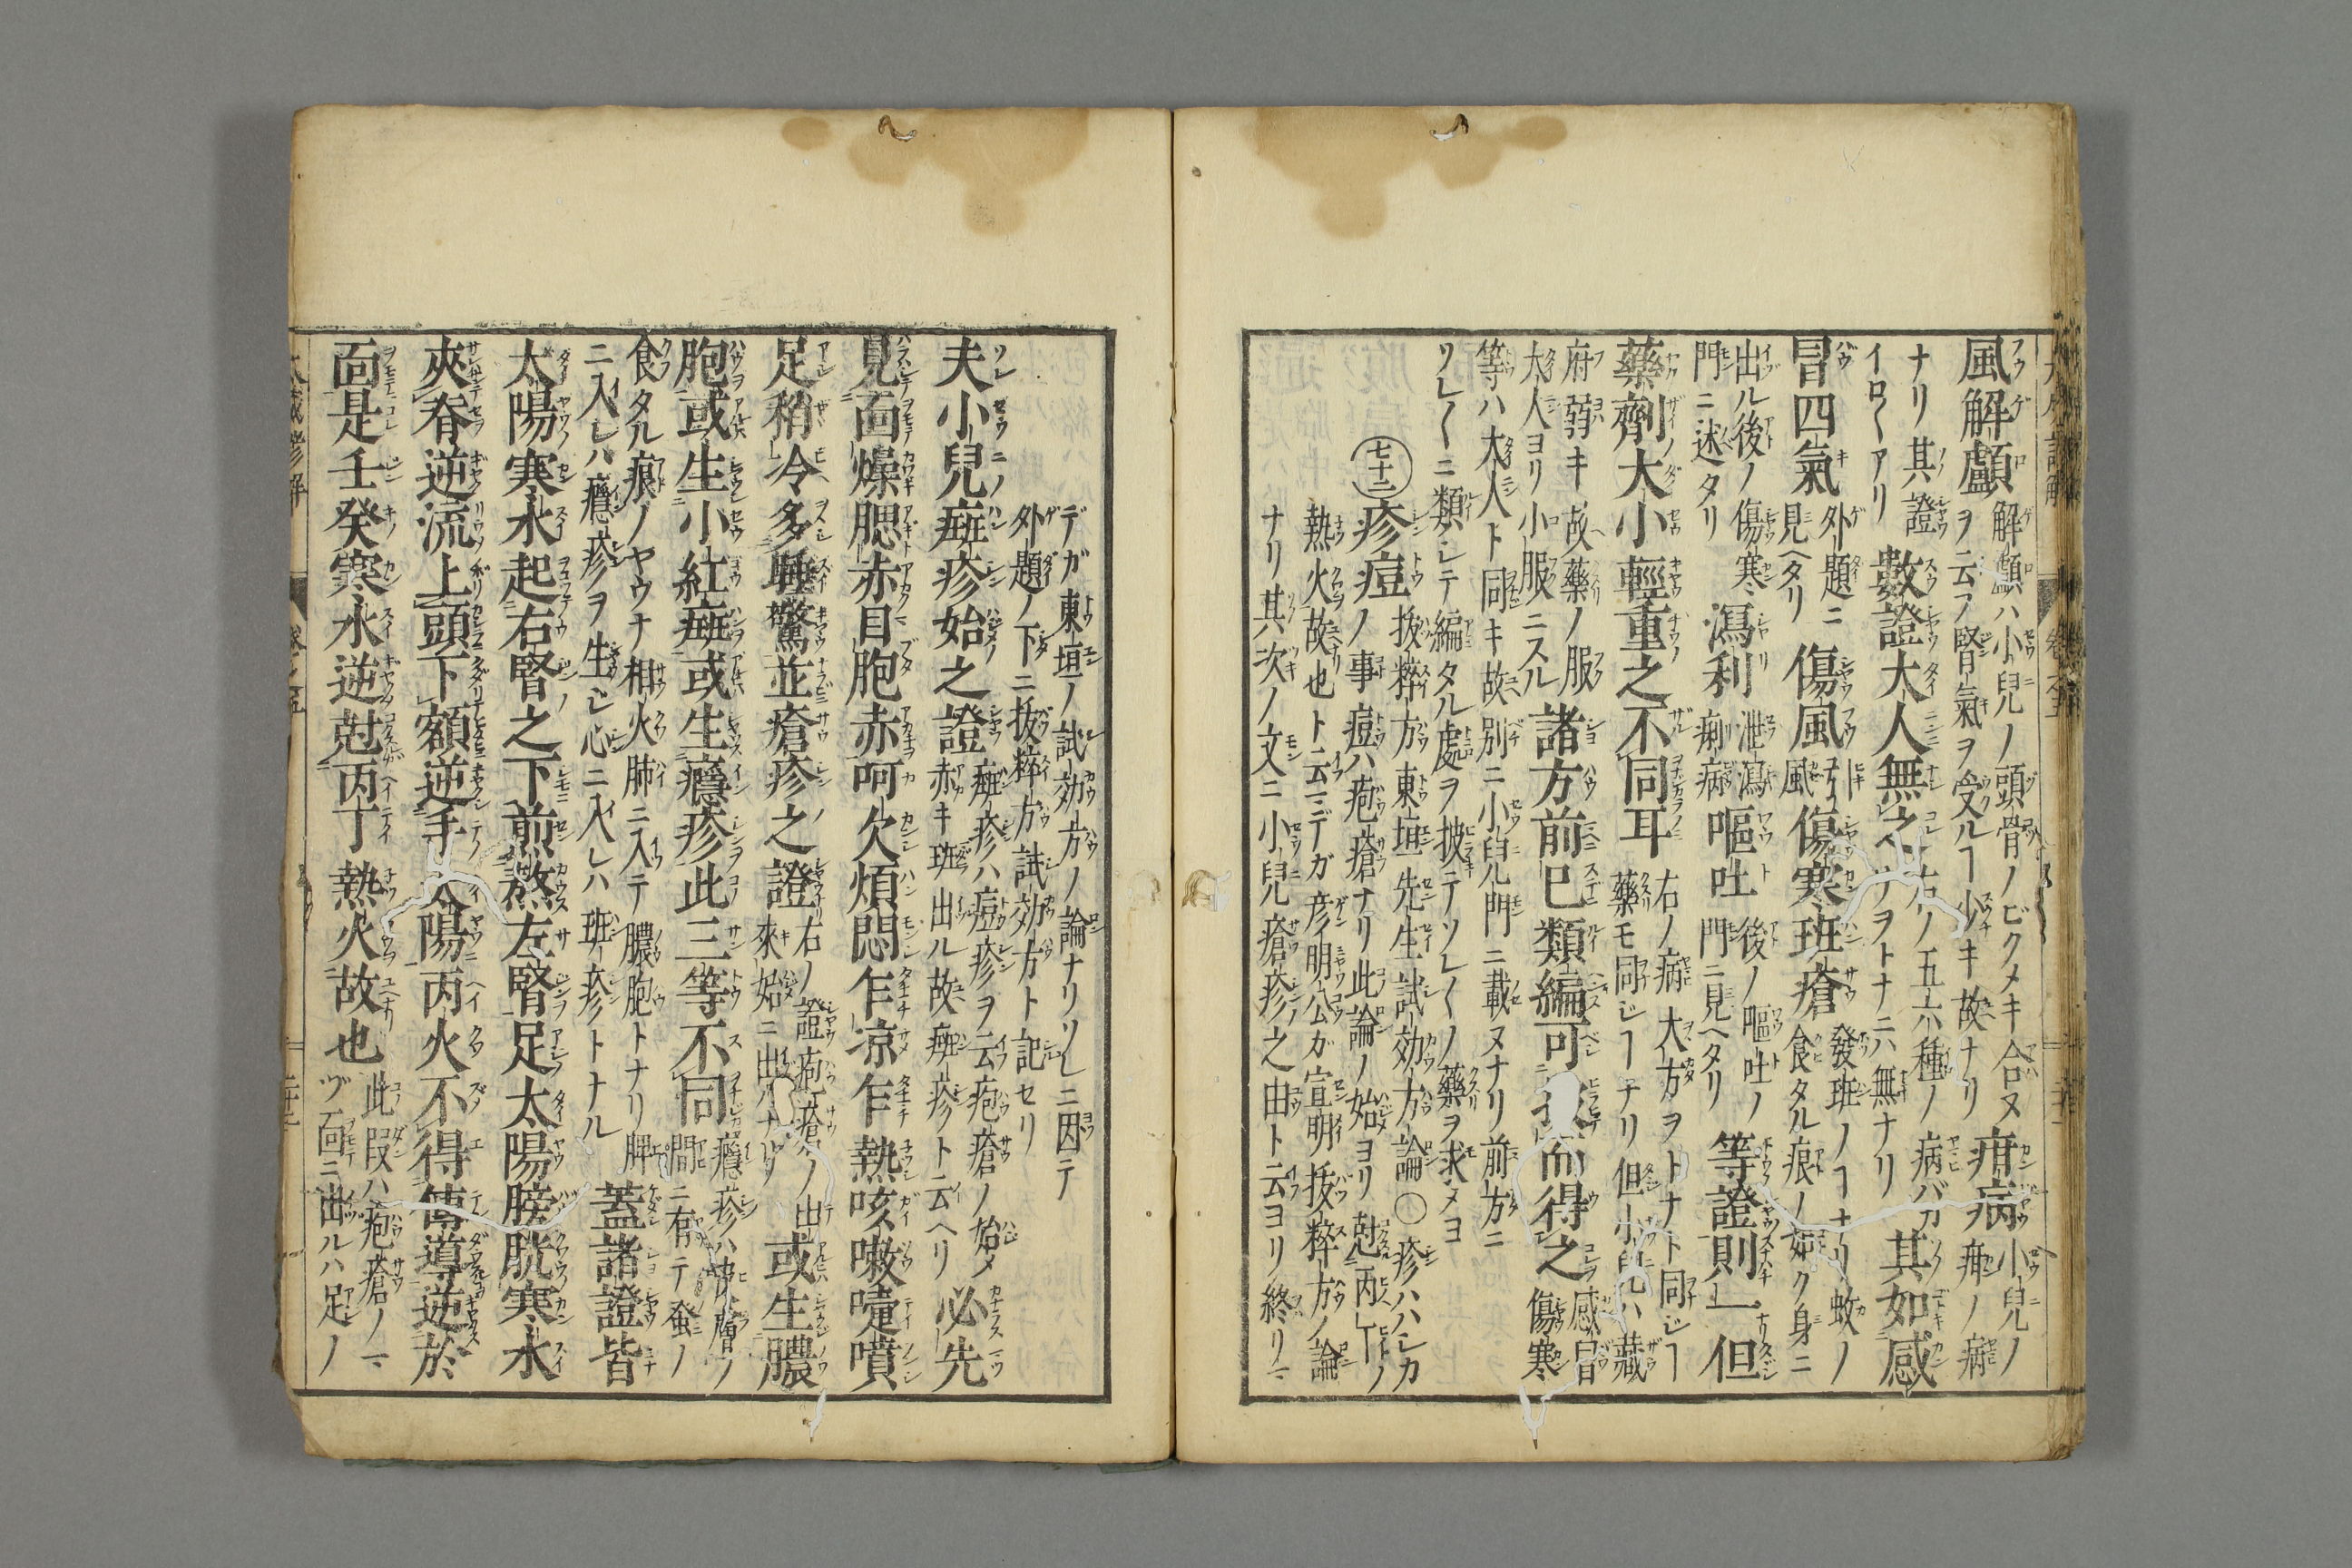 風解顱 解顱ハ小兒ノ頭骨ノビクメキ合ヌ
ヲ云フ腎氣ヲ受ルヿ少キ故ナリ 疳病 小兒ノ
疳ノ病
ナリ其證
イロ〳〵アリ 數證大人無之 右ノ五六種ノ病バカ
ヲトナニハ無ナリ 其如感
冒四氣 外題ニ
見ヘタリ 傷風 風引 傷寒班瘡 發班ノヿナリ蚊ノ
食タル痕ノ如ク身ニ
出ル後ノ傷寒
門ニ述タリ 瀉利 泄瀉
痢病 嘔吐 後ノ嘔吐ノ
門ニ見ヘタリ 等證則一但
藥劑大小輕重之不同耳 右ノ病大方ヲトナト同ジヿ
藥モ同ジヿナリ但小兒ハ藏
府弱キ故藥ノ服
大人ヨリ小服ニスル 諸方前已類編可 而得之 感冒
傷寒
等ハ大人ト同キ故別ニ小兒門ニ載ヌナリ前方ニ
ソレ〳〵ニ類シテ編タル處ヲ披テソレ〳〵ノ藥ヲ求メヨ
七十二 疹痘 拔粹方東垣先生試効方論〇疹ハハシカ
ノ事痘ハ疱瘡ナリ此論ノ始ヨリ尅丙丁ノ
熱火故也ト云マデガ彦明公ガ宣明拔粹方ノ論
ナリ其次ノ文ニ小兒瘡疹之由ト云ヨリ終リマ
デガ東垣ノ試効方ノ論ナリソレニ因テ
外題ノ下ニ拔粹方試効方ト記セリ
夫小兒癍疹始之證 癍疹ハ痘疹ヲ云疱瘡ノ始メ
赤キ班出ル故癍疹ト云ヘリ 必先
見面燥腮赤目胞赤呵欠煩悶乍凉乍熱咳嗽嚔噴
足稍冷多睡驚並瘡疹之證 右ノ證疱瘡ノ出
來始ニ出ルナリ 或生膿
胞或生小紅癍或生癮疹此三等不同 癮疹ハ皮膚ノ
間ニ有テ蚤ノ
食タル痕ノヤウナ相火肺ニ入テ膿胞トナリ脾
ニ入レハ癮疹ヲ生シ心ニ入レハ班疹トナル 蓋諸證皆
太陽寒水起右腎之下煎熬左腎足太陽膀胱寒水
夾脊逆流上頭下額逆手太陽丙火不得傳導逆於
面是壬癸寒水逆尅丙丁熱火故也 此段ハ疱瘡ノマ
ヅ面ニ出ルハ足ノ